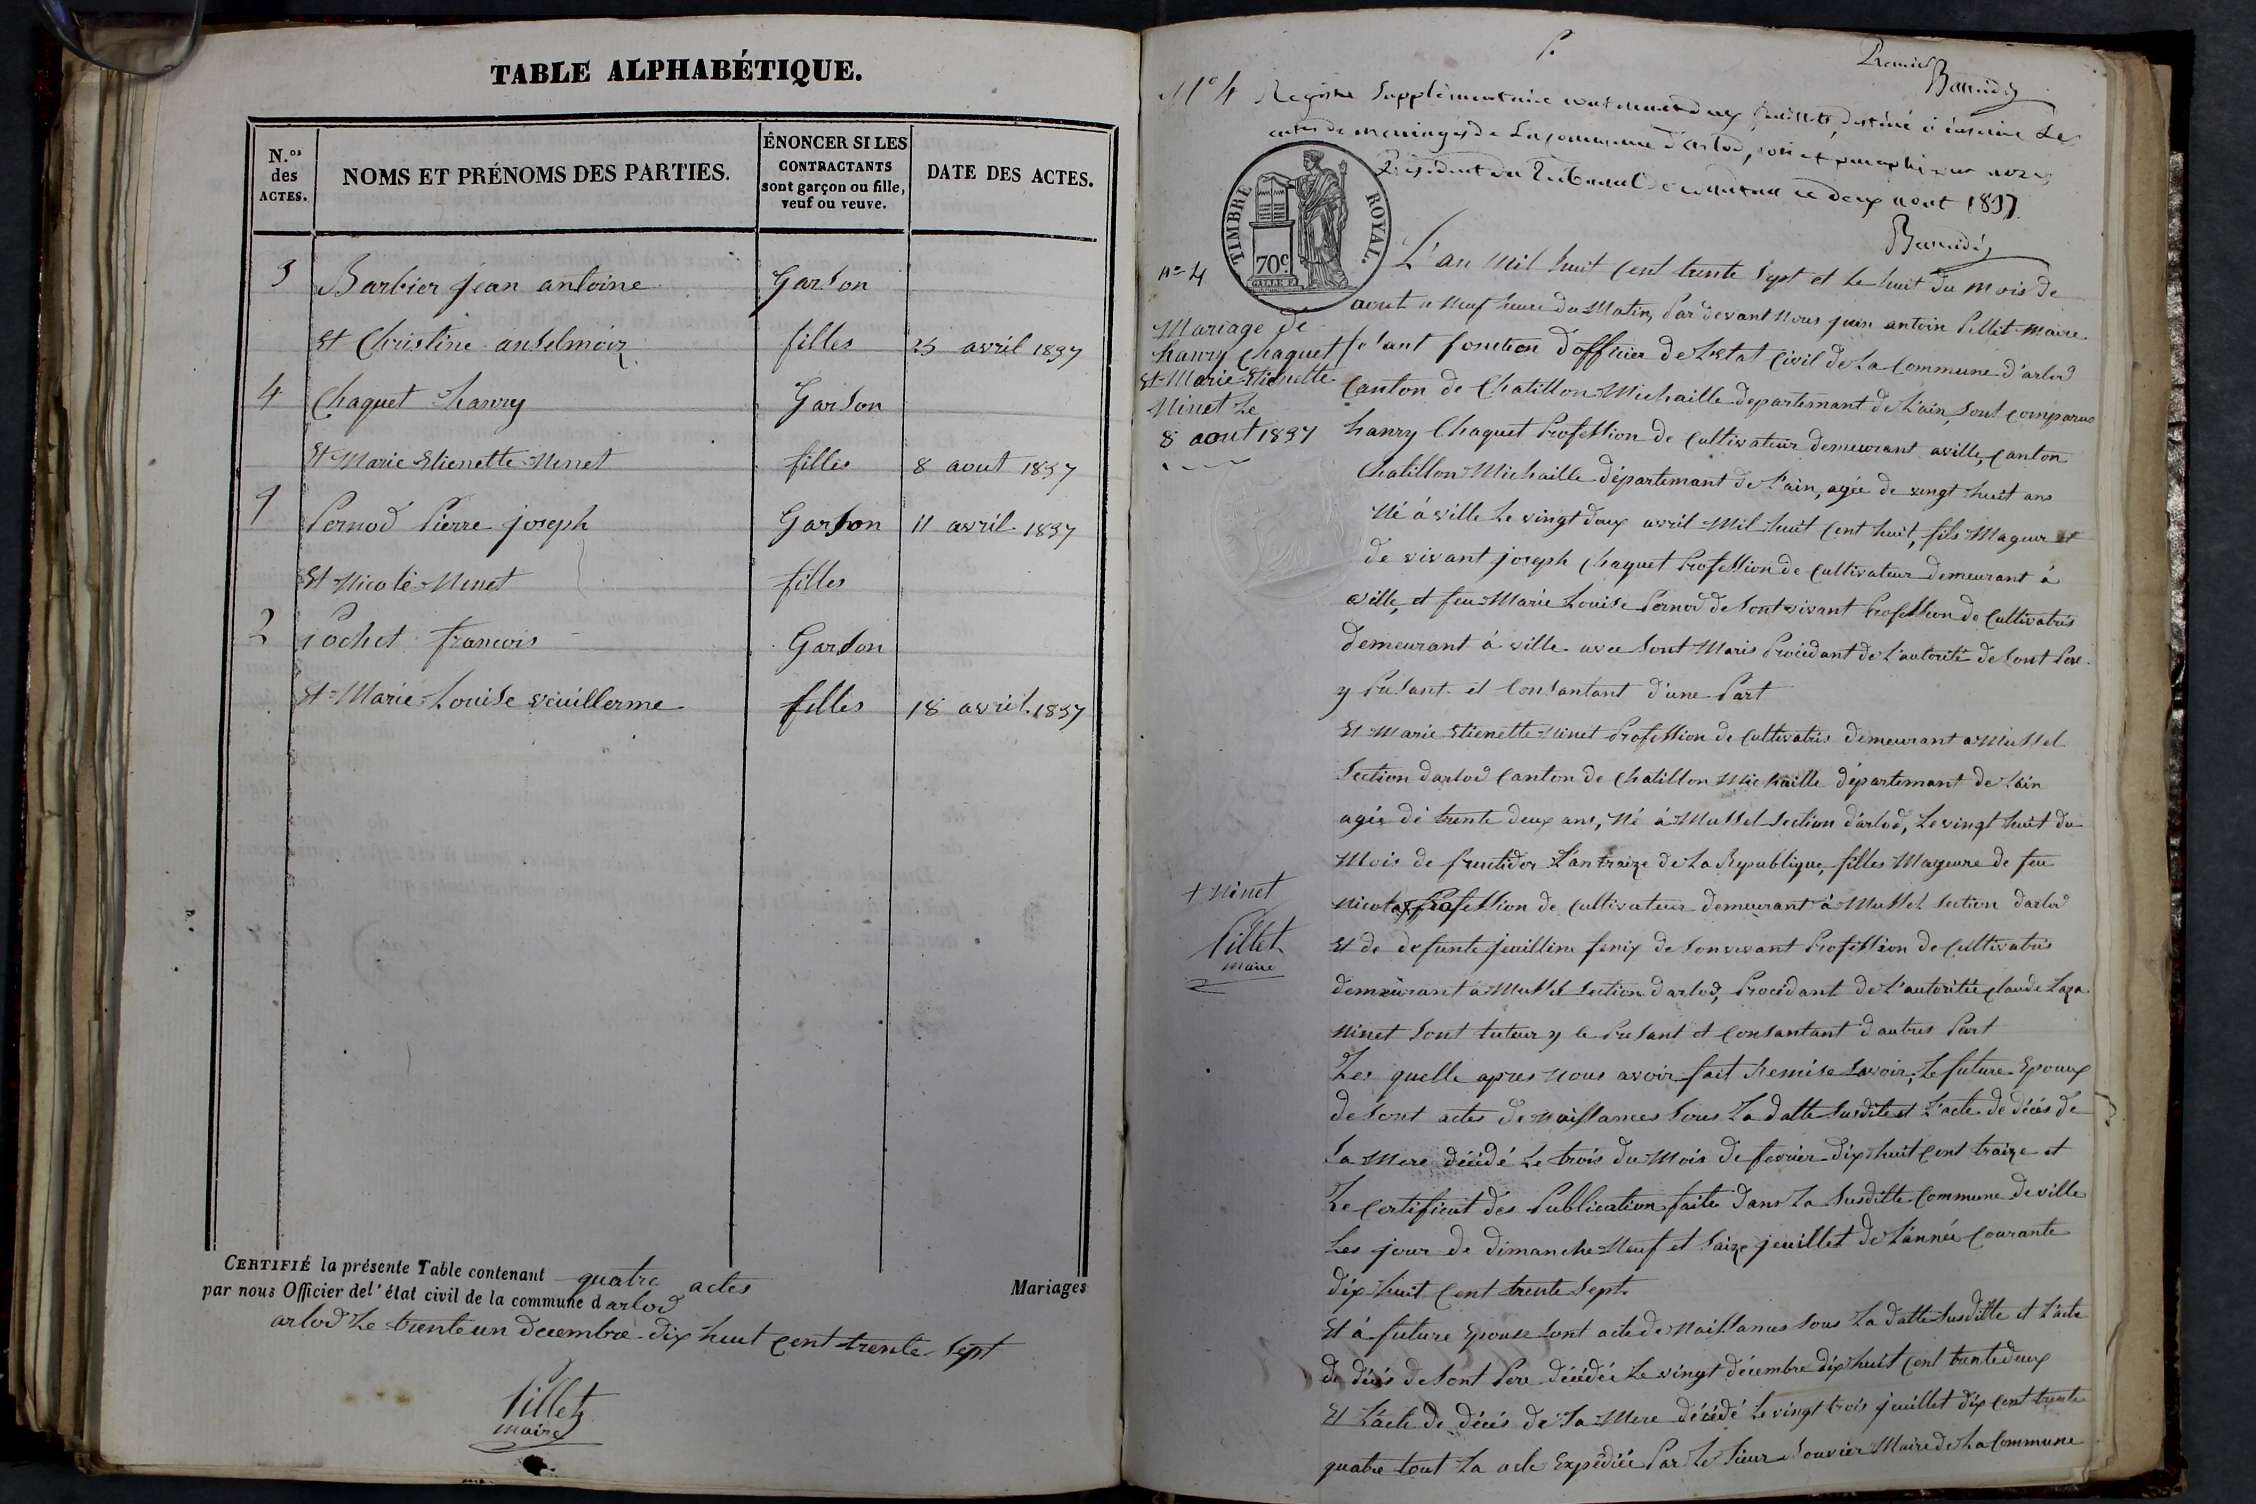 TABLE ALPHABÉTIQUE.
N.os des ACTES.
NOMS ET PRÉNOMS DES PARTIES.
ÉNONCER SI LES CONTRACTANTS sont garçon ou fille, veuf ou veuve.
DATE DES ACTES.
3 Barbier jean antoine Garson
Et Christine anselmoiz filles 25 avril 1837
4 Chaquet hanry Garson
Et Marie Etienette Ninet filles 8 aout 1837
1 Pernod Pierre joseph Garson 11 avril 1837
Et Nicole Ninet filles
2 Pochet francois Garson
Et Marie Louise vuillerme filles 18 avril 1837
CERTIFIÉ la présente Table contenant quatre actes Mariages
par nous Officier de l'état civil de la commune d arlod
arlod Le trente un decembre dix huit Cent trente Sept
Pillet
maire
Premier
N° 4 Registre Supplémentaire contenant deux feuillets, destiné à inscrire les
actes de mariages de la commune d'arlod, coté et paraphé par nous
Président du Tribunal de nantua ce deux aout 1837.
TIMBRE ROYAL.
70c.
N° 4
Mariage de
hanry Chaquet
Et Marie Etienette
Ninet Le
8 aout 1837
L'an Mil huit Cent trente Sept et Le huit du Mois de
aout a Neuf heure du Matin, Par devant Nous jean antoin Pillet Maire
fesant fonction D'officier de L'etat Civil de La Commune d'arlod
Canton de Chatillon Michaille departemant de L'ain, sont comparus
hanry Chaquet Profession de Cultivateur demeurant aville, Canton
Chatillon Michaille départemant de l'ain, agée de vingt huit ans
Né à ville Le vingt deux avril Mil huit Cent huit, fils Mageur et
de vivant joseph Chaquet Profession de Cultivateur Demeurant à
ville, et feu Marie Louise Pernod de Sont vivant Profession de Cultivatris
demeurant à ville avec Sont Maris Procédant de L'autorité de Sont Pere
y Presant et Consantant d'une Part
Et Marie Etienette Ninet Profession de Cultivatris demeurant a Mussel
Section darlod Canton de Chatillon Michaille départemant de L'ain
agés dé trente deux ans, Né à Mussel Section d'arlod, Le vingt huit du
Mois de fructidor L'an traize de La Republique, filles Mageure de feu
Nicolas + Profession de Cultivateur demeurant à Mussel Section darlod
+ Ninet
Pillet
maire
Et de defunte juilline fenix de Son vivant Profession de Cultivatris
demeurant à Mussel Section darlod, Procédant de L'autoritée Claude Laza
Ninet Sont tuteur y le Presant et Consantant d'autres Part
Les quelle apres Nous avoir fait Remise Savoir; Le future Epoux
de Sont actes de Naissances Sous La datte Susdite et L'acte de décés de
Sa Mere décédé Le trois du Mois de fevrier dix huit Cent traize et
Le Certificat des Publication faite Dans La Susditte Commune de ville
Les jour de dimanche Neuf et Saize jeuillet de L'année Courante
dix huit Cent trente Sept
Et à future Epouse Sont acte de Naissances Sous La datte Susditte et L'acte
de décés de Sont Pere décédée Le vingt décembre dix huit Cent trente deux
Et L'acte de décés de Sa Mere décédé Le vingt trois juillet dix Cent trente
quatre tout La acte Expédiée Par Le Sieur Bouvier Maire de La Commune